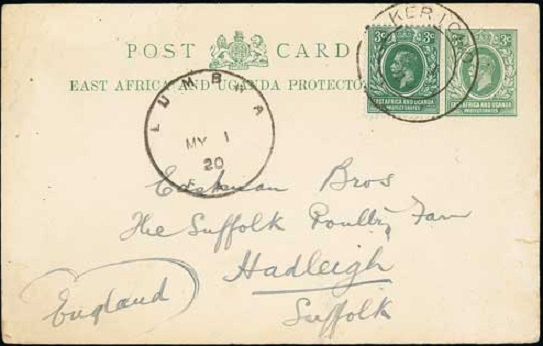 POST CARD
EAST AFRICA AND UGANDA PROTECTO
3c 3c
EAST AFRICA AND UGANDA
PROTECTORATES
EAST AFRICA AND UGANDA
PROTECTORATES
KERICHO
LUMBWA
MY 1
20
Eastman Bros
The Suffolk Poultry Farm
Hadleigh
Suffolk
England